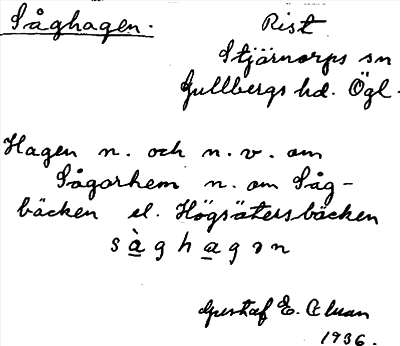 Såghagen. Rist
Stjärnorps sn
Gullbergs hd. Ögl.
Hagen n. och n. v. om
Sågarhem n. om Såg-
bäcken el. Högsätersbäcken
sàghagən
Gustaf E.
1936.